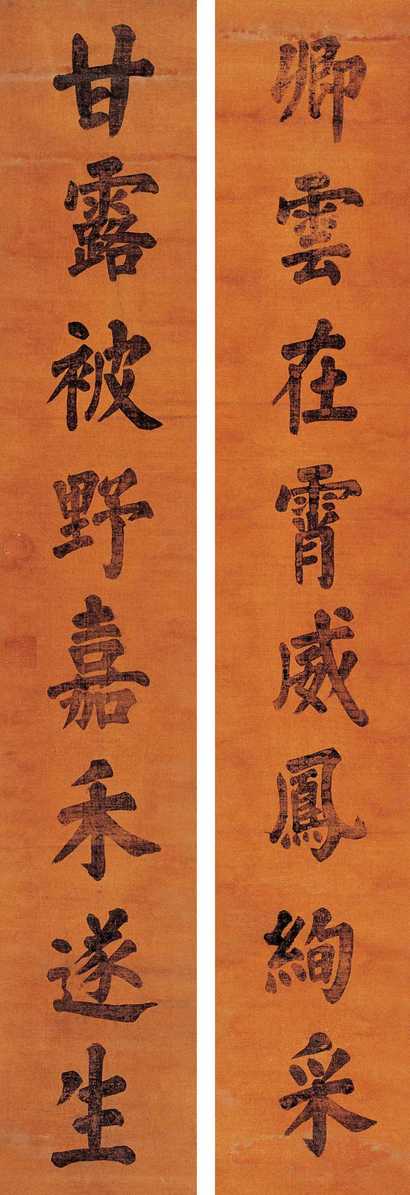 卿雲在霄威鳳絢采
甘露被野嘉禾遂生